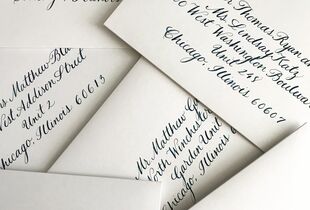 Chicago, Illinois
Mr. Thomas Ryan and
Ms. Lindsay Katz
West Washington Boulevard
Unit 248
Chicago, Illinois 60607
Matthew
West Addison Street
Unit 2
Chicago, Illinois 60613
Mr. Matthew
North Winchester
Garden Unit
Chicago, Illinois